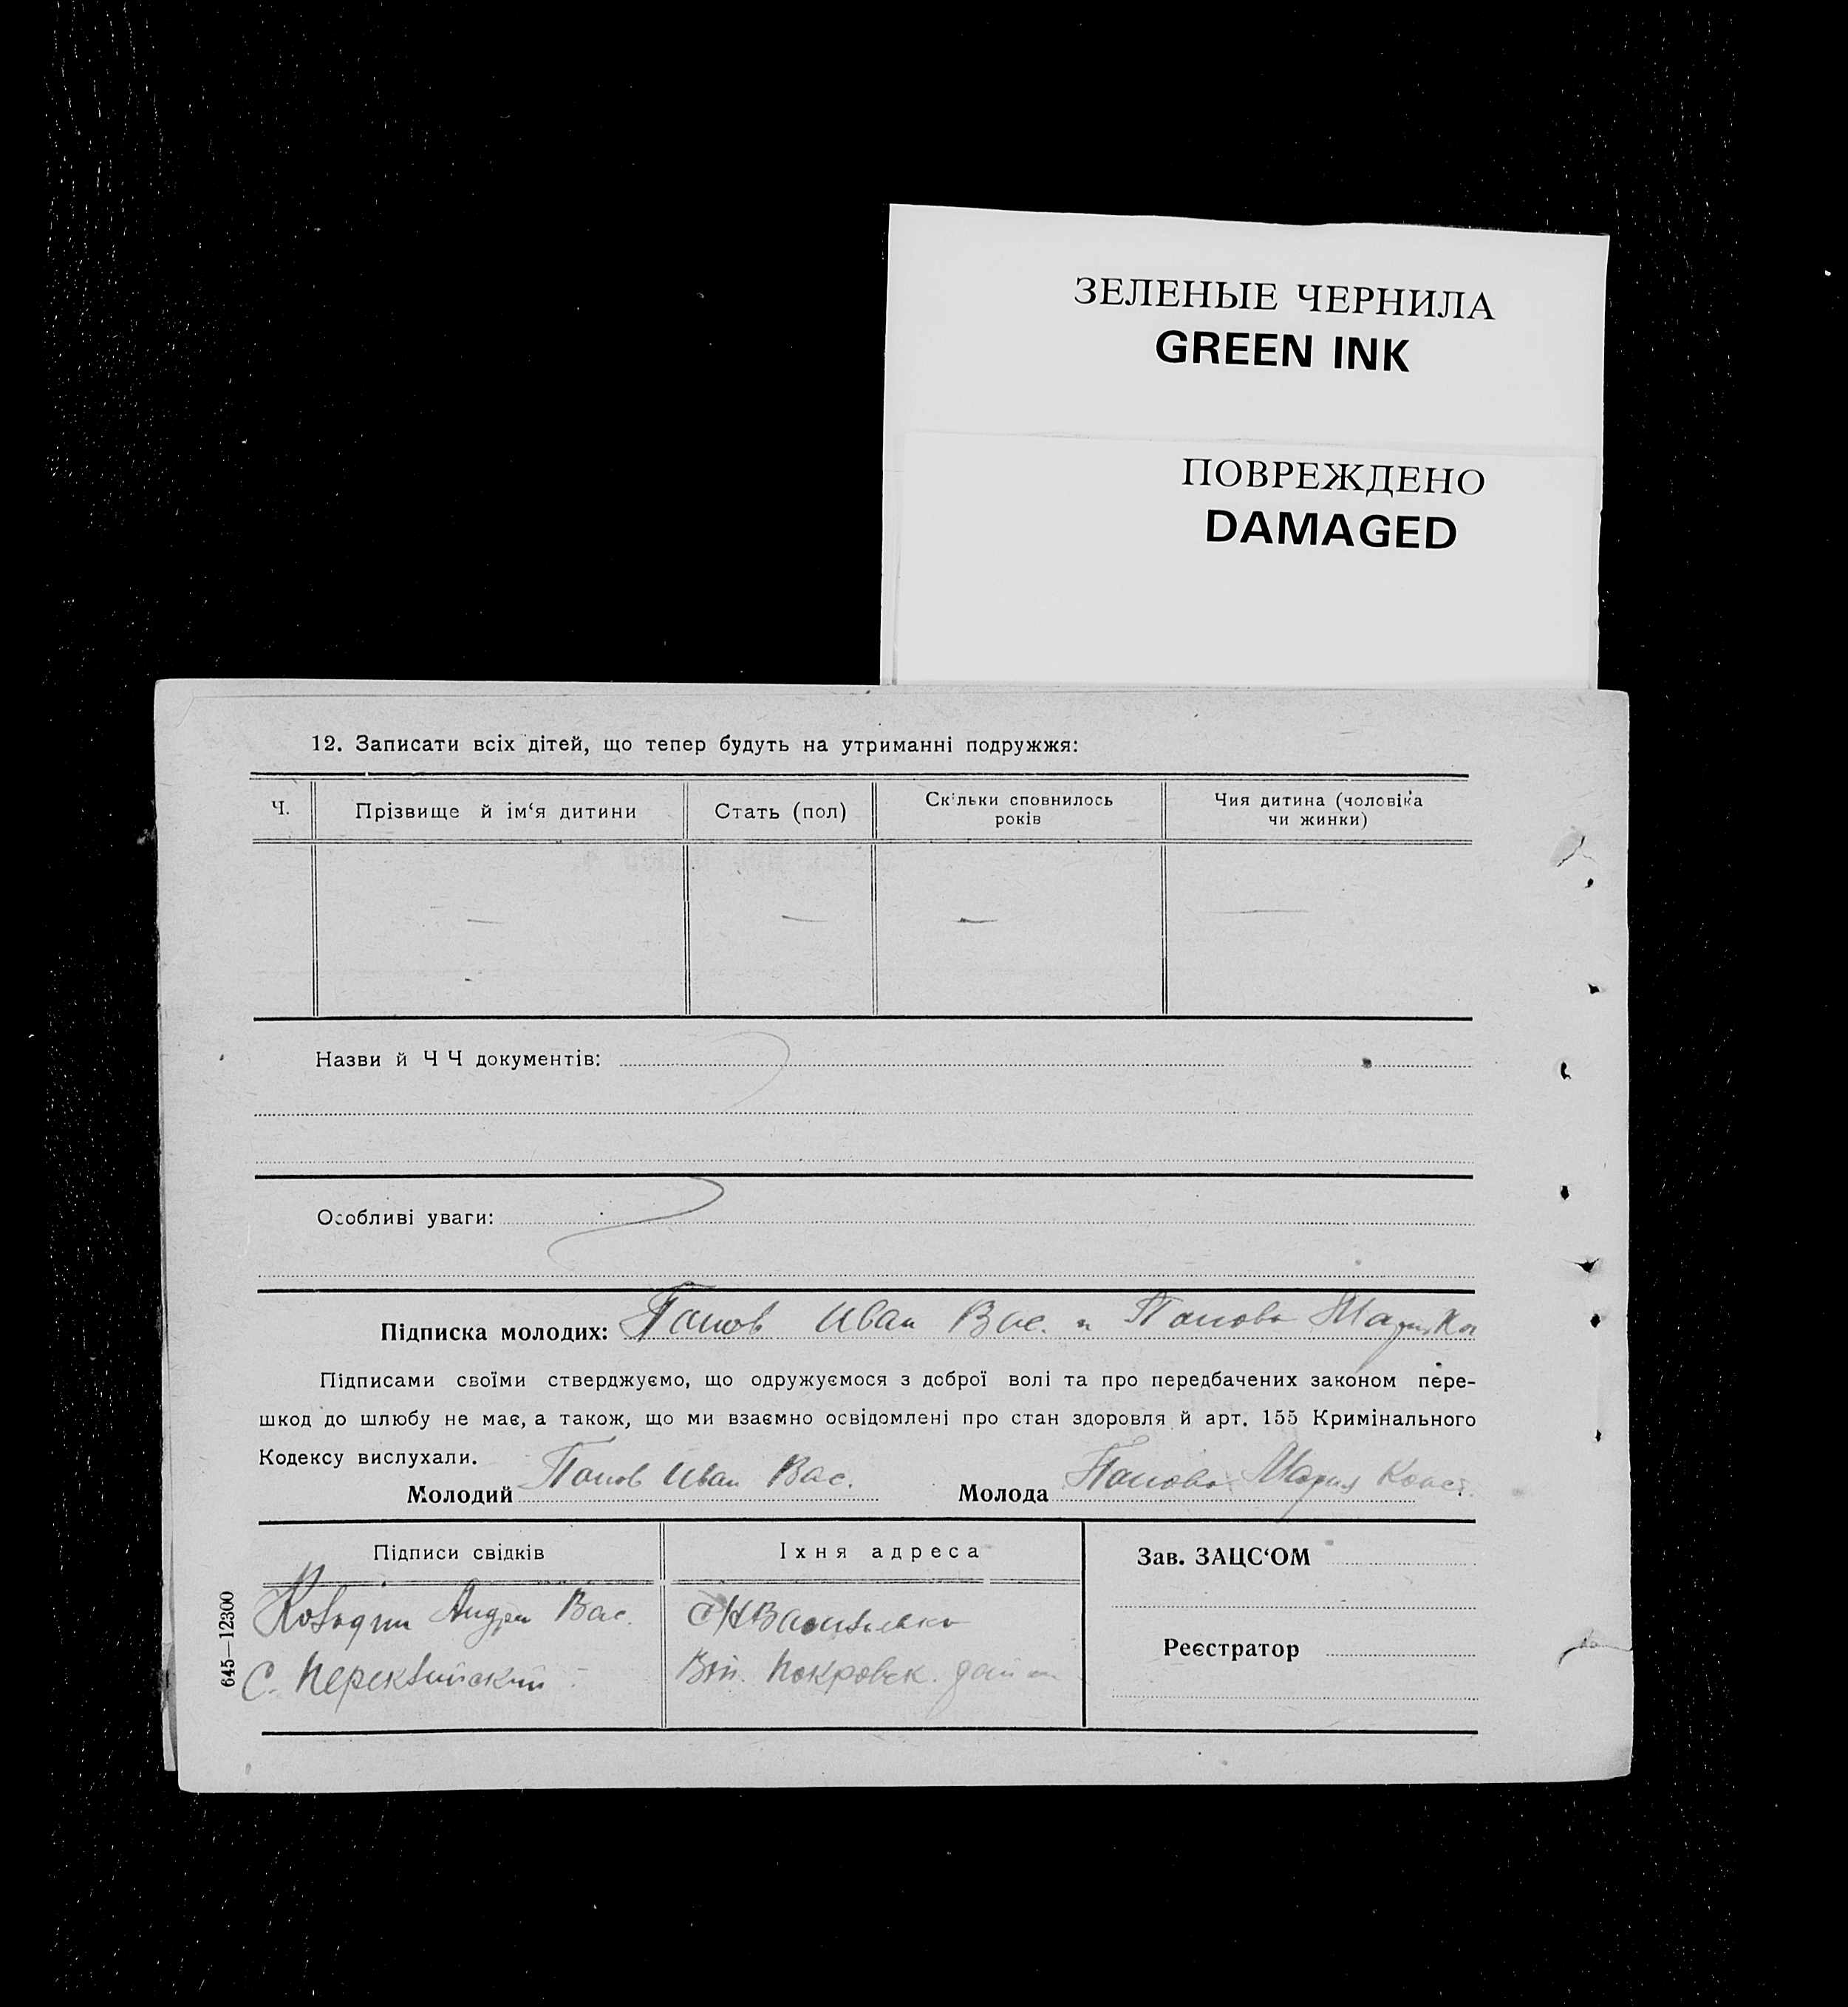 ЗЕЛЕНЫЕ ЧЕРНИЛА
GREEN INK
ПОВРЕЖДЕНО
DAMAGED
12. Записати всіх дітей, що тепер будуть на утриманні подружжя:
Ч.
Прізвище й ім‘я дитини
Стать (пол)
Скільки сповнилось
років
Чия дитина (чоловіка
чи жинки)
— — — —
Назви й Ч Ч документів:
Особливі уваги:
Підписка молодих: Попов Иван Вас. и Попова Мария Кон
Підписами своїми стверджуємо, що одружуємося з доброї волі та про передбачених законом пере-
шкод до шлюбу не має, а також, що ми взаємно освідомлені про стан здоровля й арт. 155 Кримінального
Кодексу вислухали.
Молодий Попов Иван Вас. Молода Попова Мария Конст.
Підписи свідків
Їхня адреса
Зав. ЗАЦС‘ОМ
Андрей Вас.
С.
Покровск.
Реєстратор
645—12300